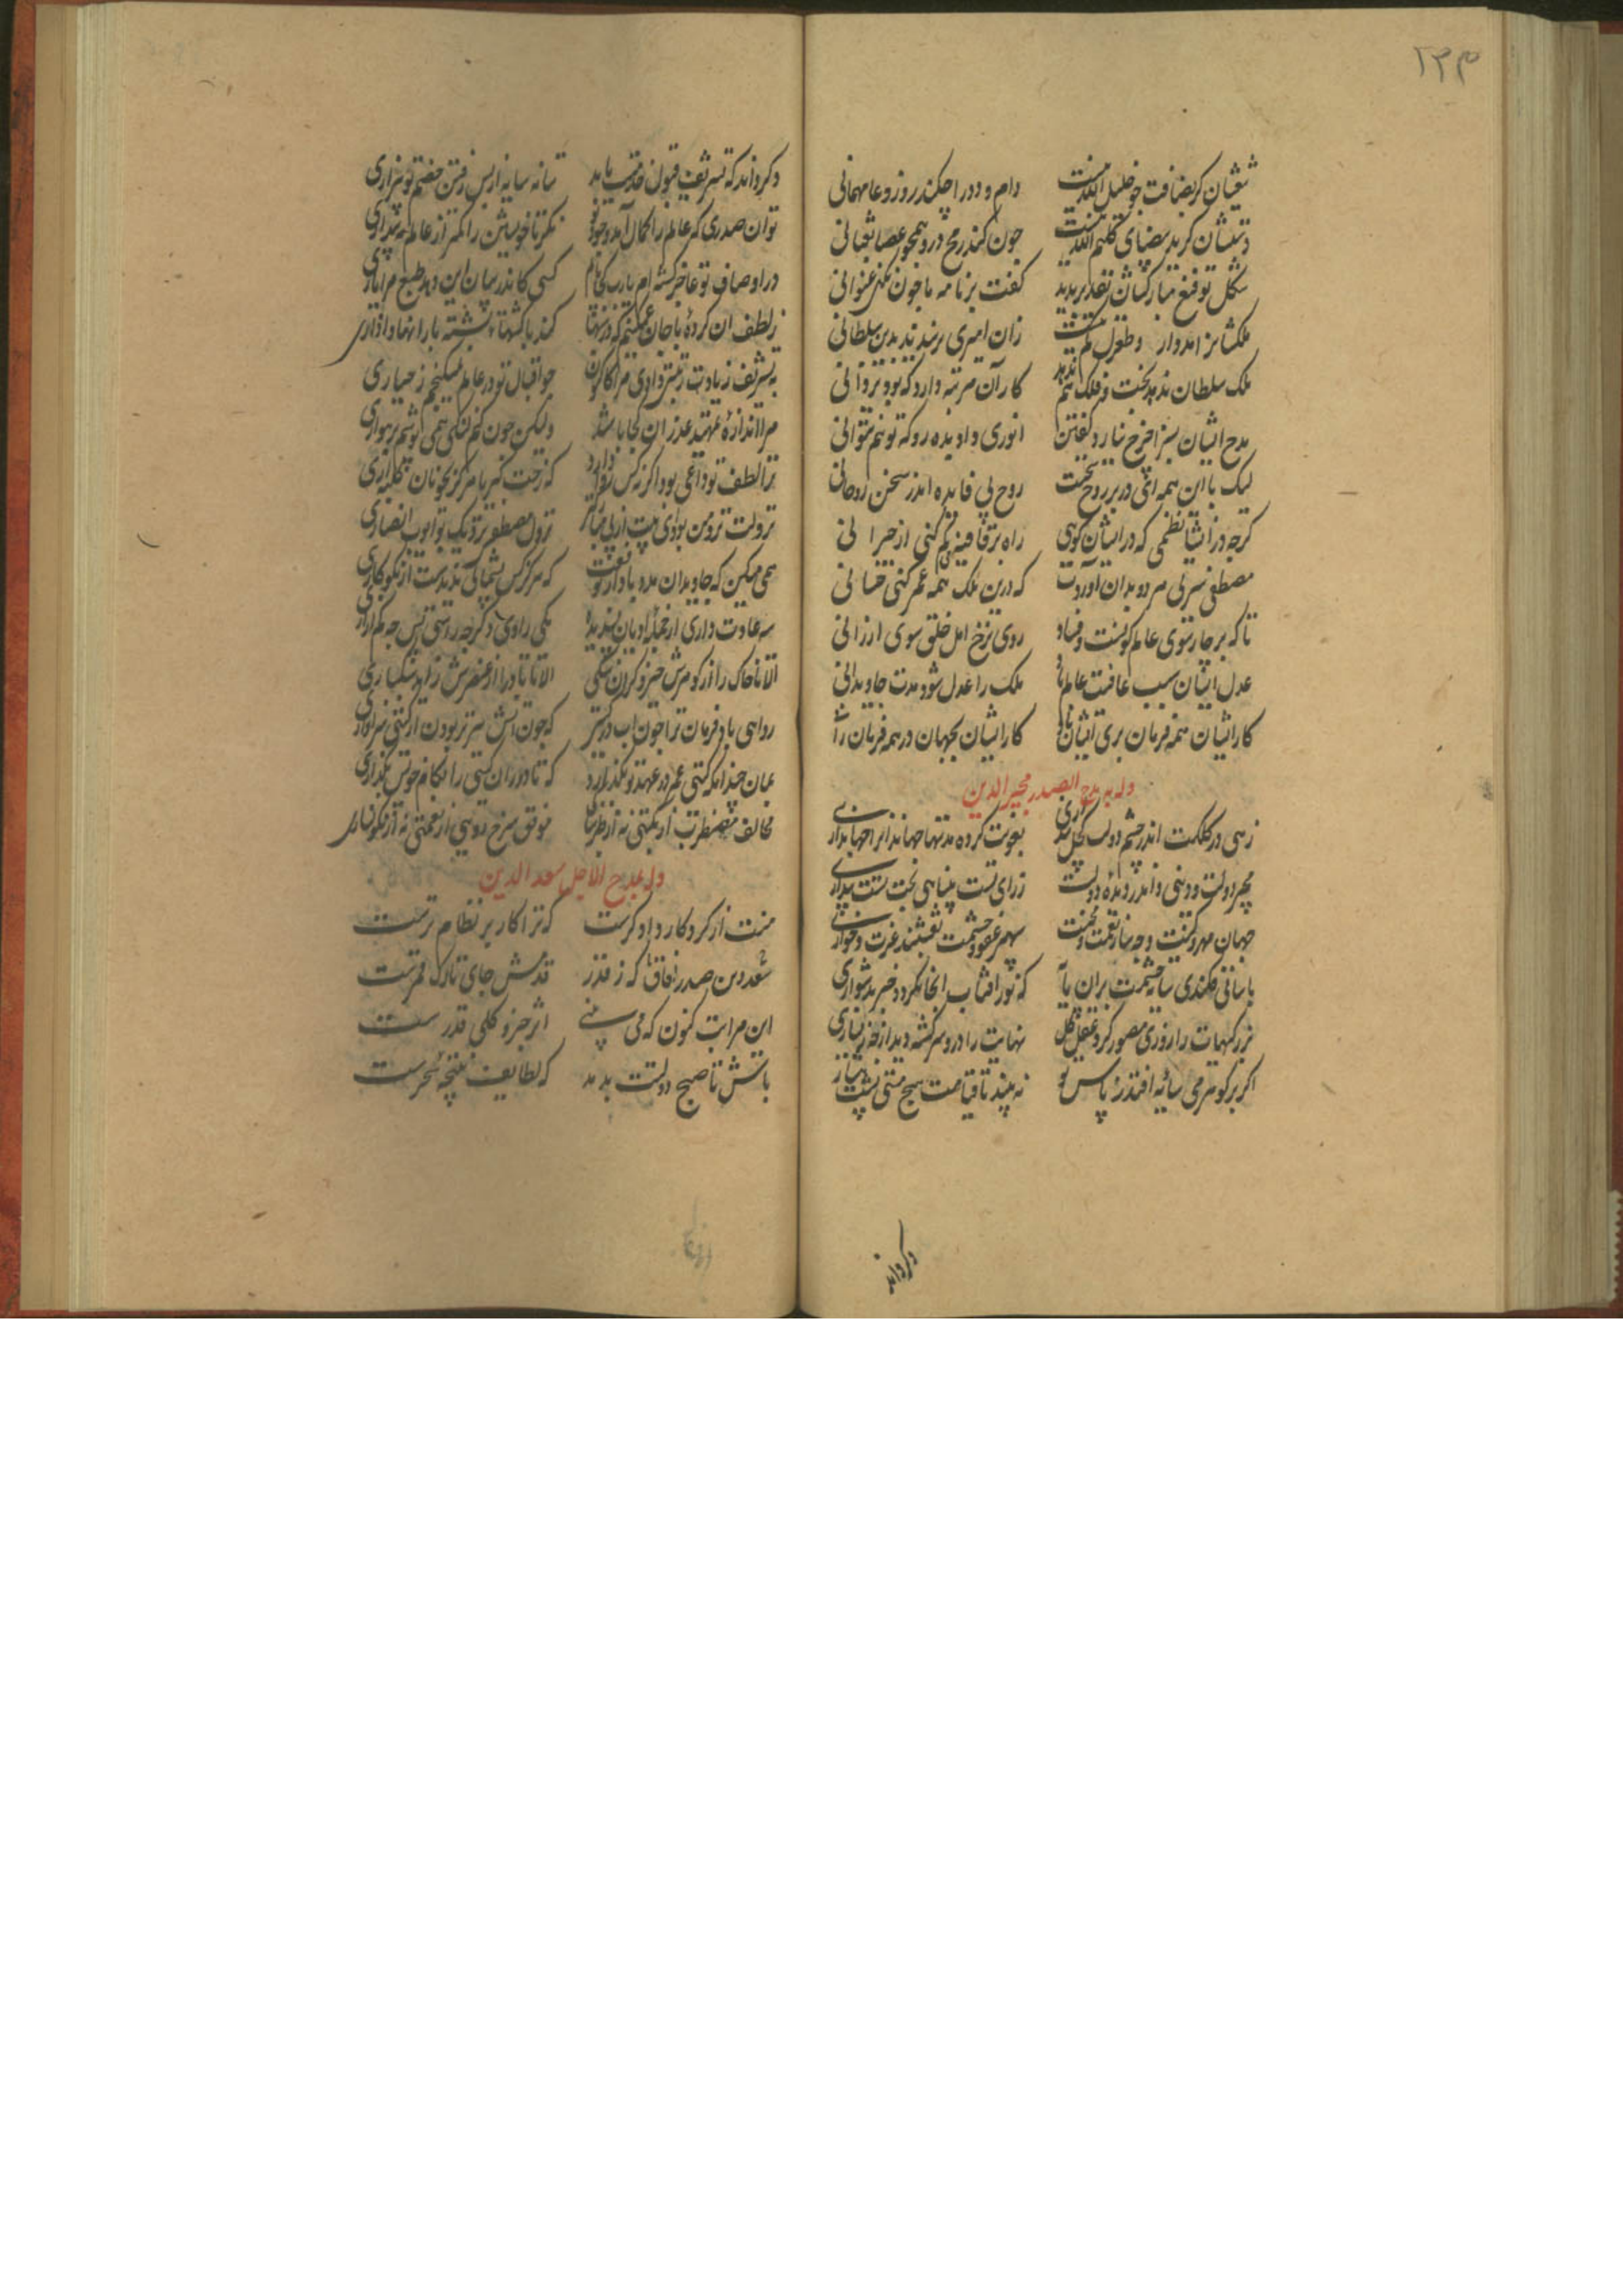 ۲۳۳
تیغشان گر بضیافت چو خلیل الله نیست دام و دد را چکند روز وغا مهمانی
دستشان گر ید بیضای کلیم الله نیست چون کند رمح درو همچو عصا ثعبانی
شکل توقیع مبارکشان تقدیر بدید گفت بر نامه ما چون نکنی عنوانی
زان امیری برسیدند بدین سلطانی
ملک سلطان ندهد بخت و فلک هم ندهد کار آن مرتبه دارد که بود یزدانی
مدح ایشان بسزا چرخ نیارد گفتن انوری داد بده رو که تو هم نتوانی
لیک با این همه ای در بر روح سخنت روح بی فایده اندر سخن روحانی
گرچه در انشا نظمی که در ایشان گویی راه بر قافیه گم کنی از حیرانی
که درین ملک همه عمر کنی حسانی
تا که بر چار سوی عالم کونست و فساد روی نرخ امل خلق سوی ارزانی
عدل ایشان سبب عافیت عالم باد ملک را عدل شود مدت جاویدانی
کار ایشان بجهان در همه فرمان رانی
وله بمدح الصدر مجیر الدین
زهی در کلکت اندر چشم دولت کحل بیداری بعونت کرده مدتها جهاندار جهانداری
مجیر دولت و دینی و اندر دیده دولت ز رای تست بینایی ز بخت تست بیداری
جهان مهر و کینت وجه ساز نعمت و محنت سپهر عفو و خشمت نقشبند عزت و خواری
بآسانی فکندی سایه حشمت بران پایه که نور آفتاب آنجا نگردد جز بدشواری
بزرگیهات را روزی مصور کرد عقل کل نهایت را درو سرگشته دید از چه ز بسیاری
اگر بر گوهر می سایه افتد ز پاس تو نه بیند تا قیامت هیچ مستی پشت هشیاری
دگر داند
دگر داند که تشریف قبول خدمتت یابد
تو آن صدری که عالم را کمال آمد وجود تو نگر تا خویشتن را کمتر از عالم نپنداری
در اوصاف تو عاجز گشته ام یارب کجا یابم کسی کاندر بیان این دهد طبع مرا یاری
ز لطف آن کرده با جان غمگینم که در شبها کند با کشتهای تشنه باران آزاری
چو اقبال تو در عالم نمیگنجم ز جباری
مرا اندازه تمهید عذر آن کجا باشد ولیکن چون کنم لنگی همی پوشم برهواری
ترا لطف تو داعی بود اگر نه کس روا دارد که رخت کبریا هرگز بچونان کلبه آری
نزولت نزد من بود ای بپیت از پی نزول مصطفی نزدیک بو ایوب انصاری
همی کن که جاویدان مدد بادا ز توفیقت که هرگز کس پشیمانی ندیدست از نکوکاری
سه عادت داری اندر جمله ادیان پسندیده یکی رادی دگر چه راستی پس چه کم آزاری
الا تا خاک را از گوهرش خیزد گران سنگی الا تا باد را از عنصرش زاید سبکساری
روا می باد فرمان ترا چون آب در گیتی که چون آتش سر بودن ار گیتی سزاواری
بمان چندانکه گیتی عمر در عهد تو بگذارد که تا دوران گیتی را بکام خویش بگذاری
مخالف مضطرب از نکبتی نه از طربناکی موافق سرخ رویی از نعمتی نه از نگونساری
وله بمدح الاجل سعد الدین
منت از کردگار دادگرست که ترا کار بر نظام ترست
سعد دین صدر آفاق که ز قدر قدمش جای تارک قمرست
این مراتب کنون که می بینی اثر جزو کلی قدرست
باتش تا صبح دولتت بدمد که لطایف نتیجه سحرست